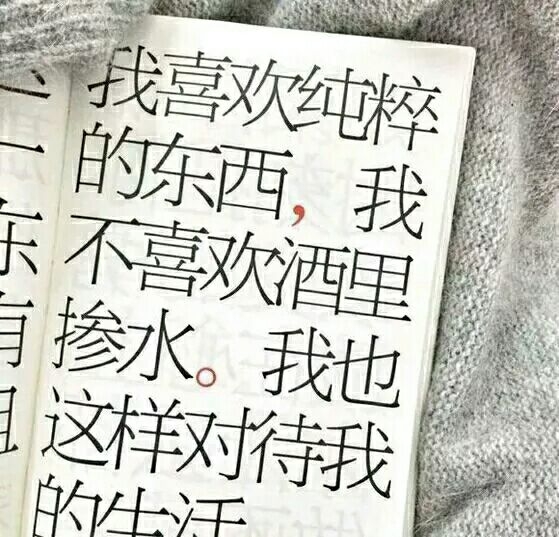 我喜欢纯粹
的东西，我
不喜欢酒里
掺水。我也
这样对待我
的生活